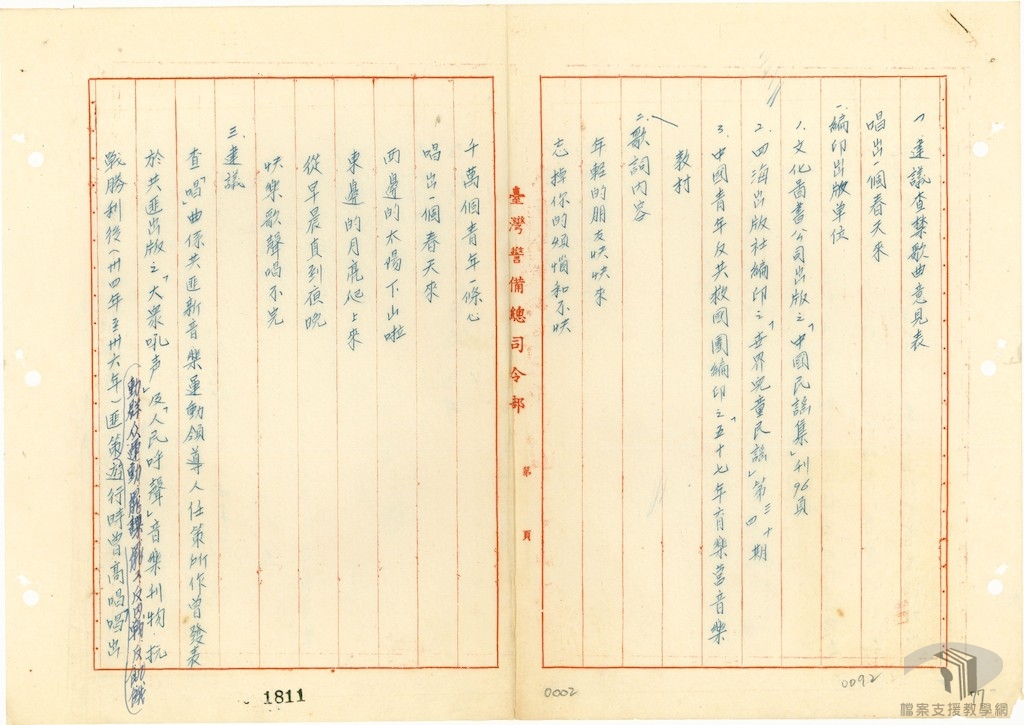 、建議查禁歌曲意見表
唱出一個春天來
一、編印出版單位
1.文化圖書公司出版之「中國民謠集」刊96頁
2.四海出版社編印之「世界兒童民謠」第三十四期
3.中國青年反共救國團編印之「五十七年育樂營音樂
教材
二、歌詞內容
年輕的朋友快快來
忘掉你的煩惱和不快
臺灣警備總司令部
第 頁
千萬個青年一條心
唱出一個春天來
西邊的太陽下山啦
東邊的月亮爬上來
從早晨直到夜晚
快樂歌聲唱不完
三、建議
查「唱」曲係共匪新音樂運動領導人任策所作曾發表
於共匪出版之「大衆吼声」及「人民呼聲」音樂刊物,抗
戰勝利後(卅四年至卅六年)匪策動群众運動罷課
反內戰反飢餓
遊行時曾高唱「唱出
1811
0002
0092
77
檔案支援教學網